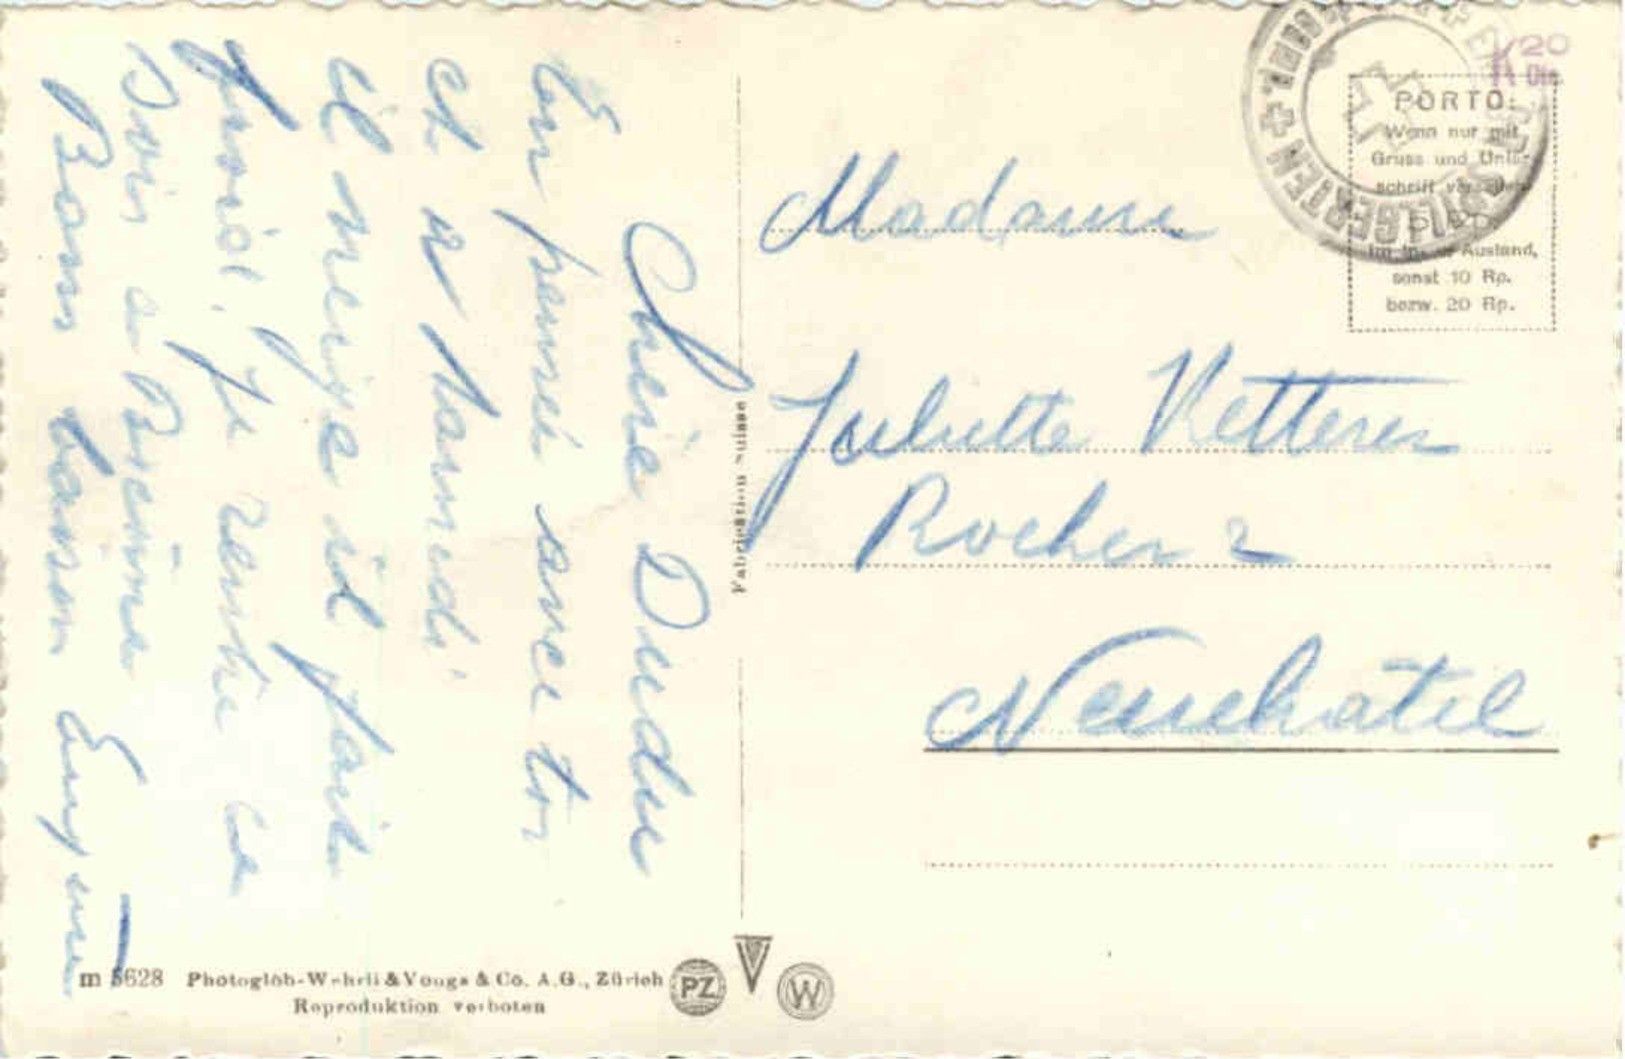 Chère Dudu
En pensée avec toi
et a samedi
il neige il fait
froid, je rentre ce
soir à Bienne
Bons baisers
Madame
Juliette Ketterer
Rocher 2
Neuchâtel
PORTO:
Wenn nur mit
Gruss und Unter-
schrift versehen
5 Rp.
im In- u. Ausland,
sonst 10 Rp.
bezw. 20 Rp.
Fabrication Suisse
m 5628 Photoglob-Wehrli & Vouga & Co. A.G., Zürich
Reproduktion verboten
PZ
V
W
K 20